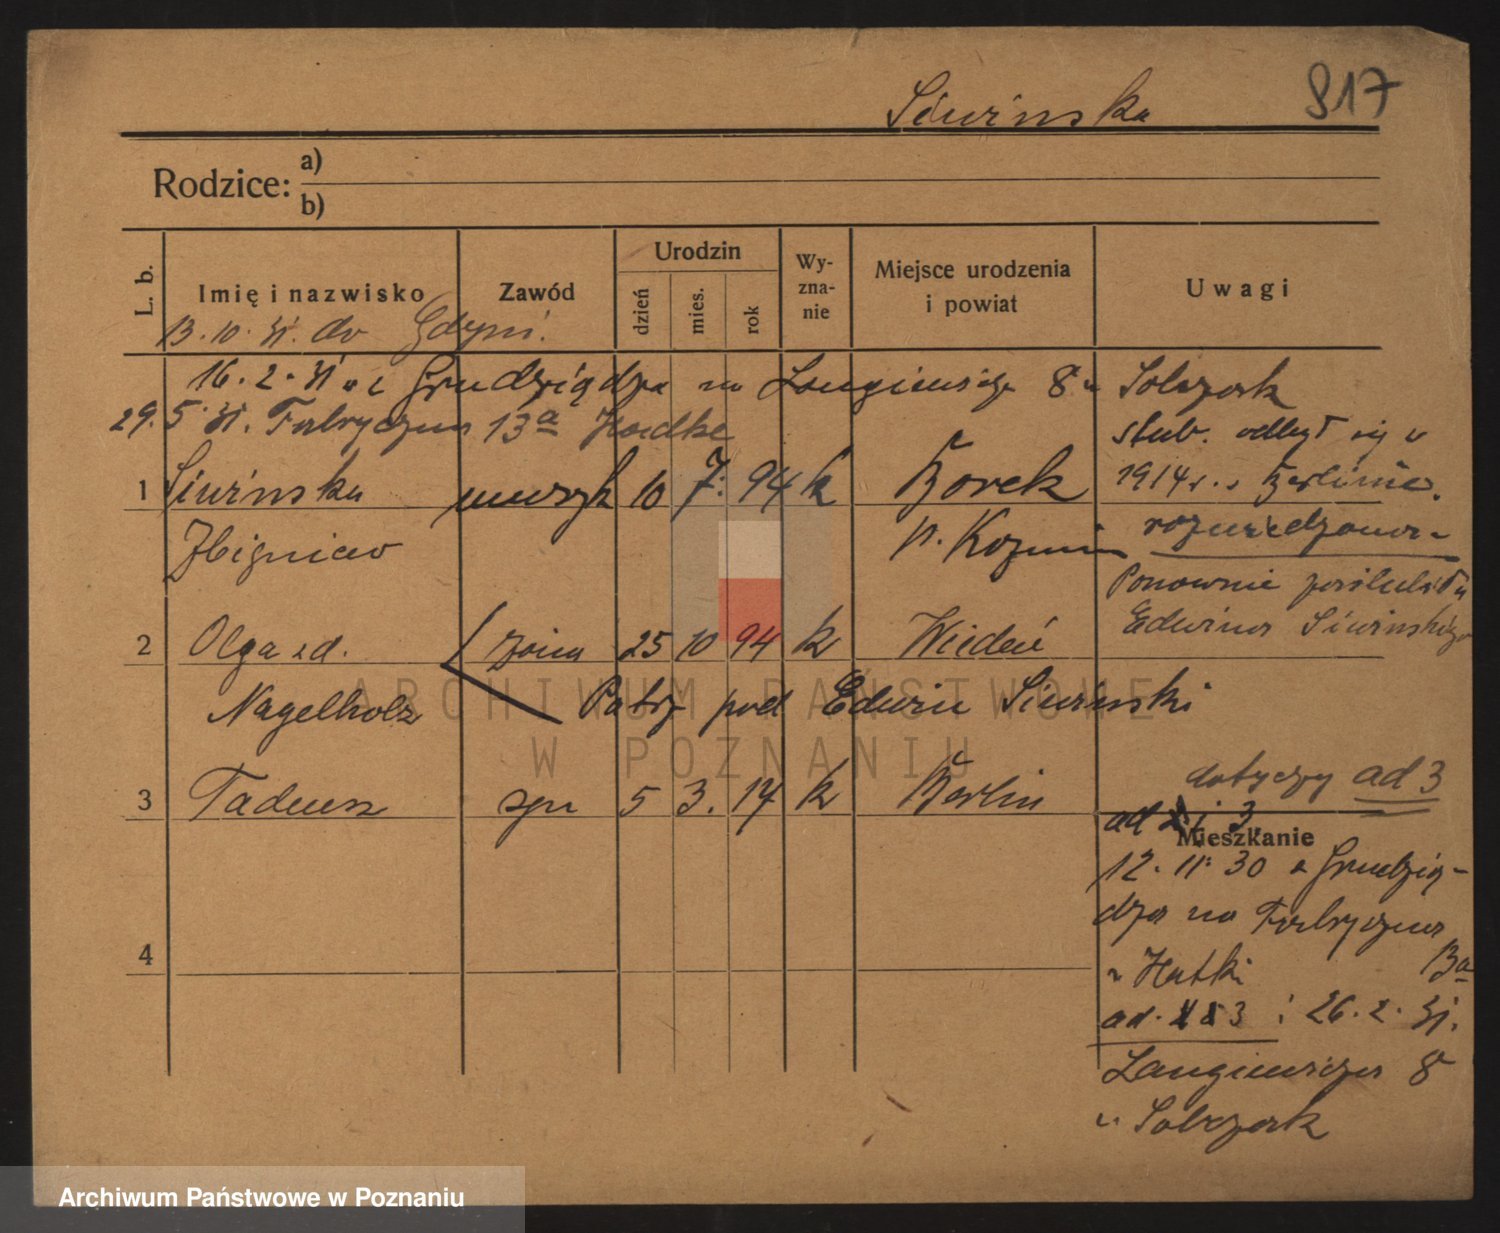 Siwinska 817
Rodzice: a)
b)
L. b.
Imię i nazwisko
Zawód
Urodzin
dzień
mies.
rok
Wy-
zna-
nie
Miejsce urodzenia
i powiat
Uwagi
13. 10. 31. do Gdyni.
16. 2. 31 z Grudziądza na Langiewicza 8 u Sobczak
29. 5. 31. Fabryczna 13a
ślub. odbył się w
1914 r. w Berlinie.
1 Siwinska muzyk 10 7. 94 k Borek
rozwiedziona
Zbigniew p. Kozmin
Ponownie poślubiła
Edwina Siwinskiego
2 Olga zd. żona 25 10 94 k Wiedeń
Nagelholz Patrz pod Edwin Siwinski
dotyczy ad 3
3 Tadeusz syn 5 3. 14 k Berlin
ad 2 i 3
Mieszkanie
12. 11. 30 z Grudzią-
dza na Fabryczna
13a
4
ad. 3 26. 2. 31.
Langiewicza 8
u Sobczak
ARCHIWUM PAŃSTWOWE
W POZNANIU
Archiwum Państwowe w Poznaniu